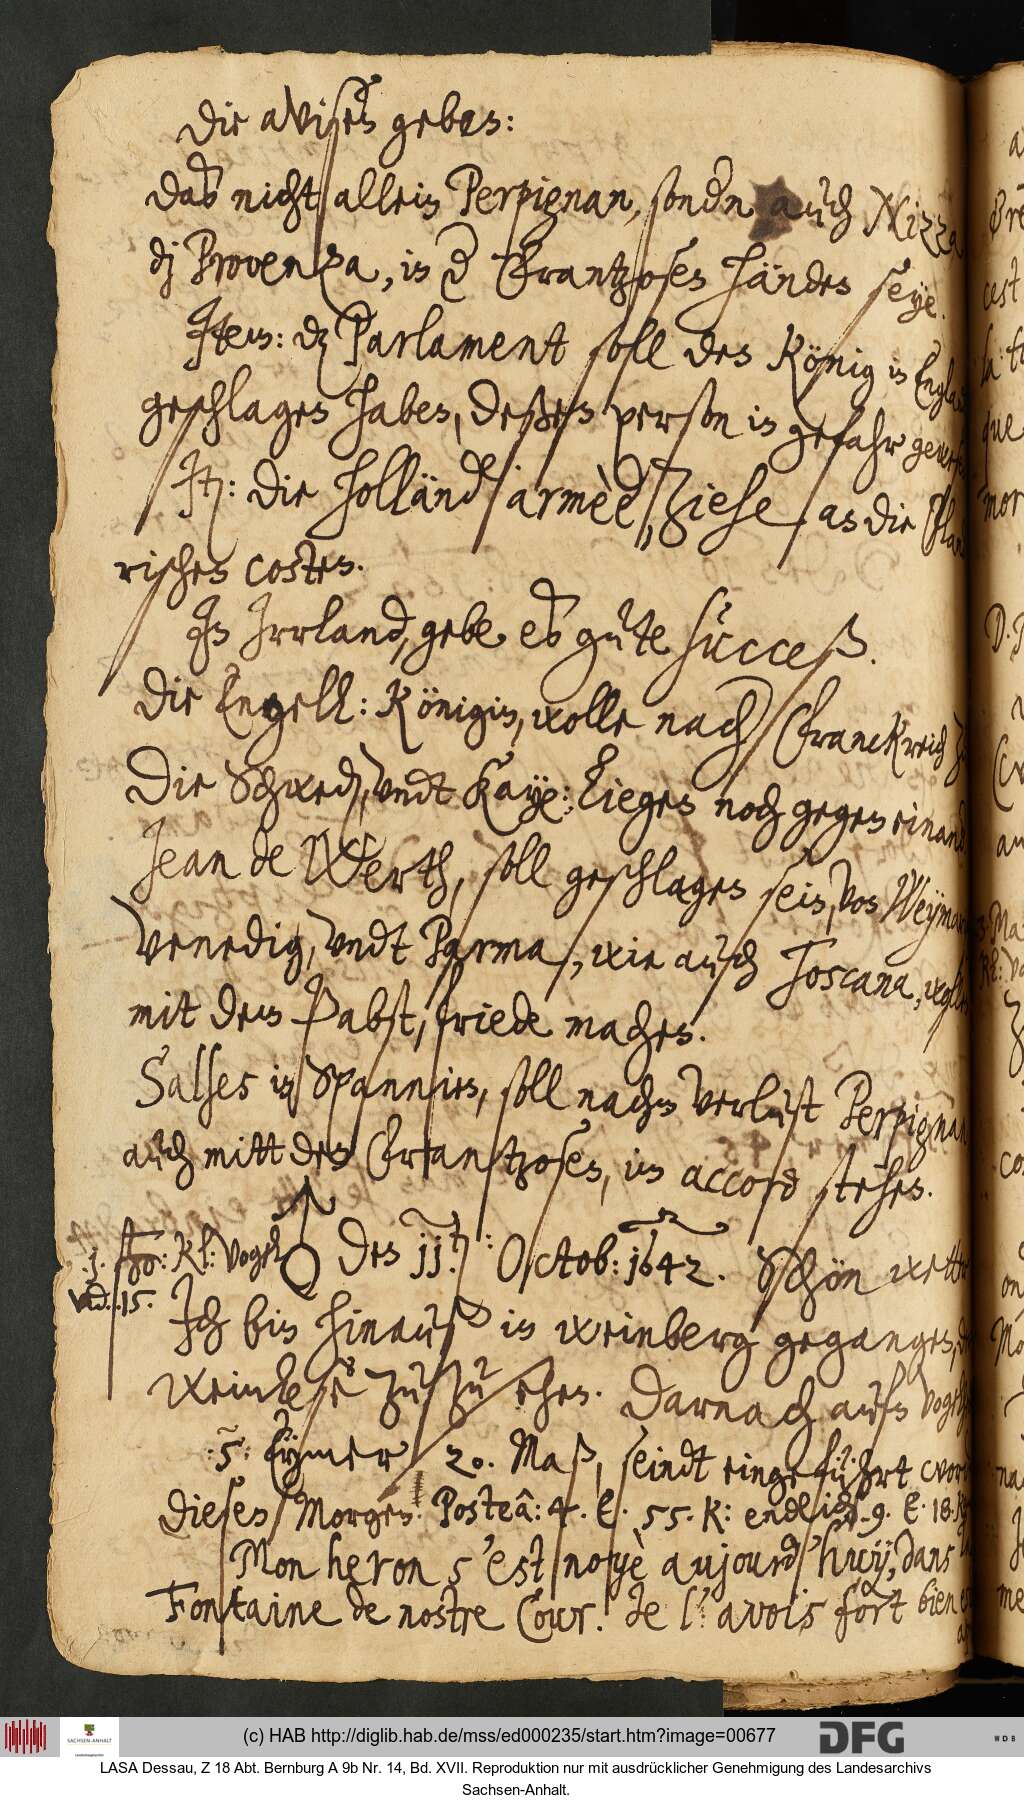 Die avisen geben:
Daß nicht allein Perpignan, sondern auch Nizza
di Provenza, in der Frantzosen händen seye.
Item: daß Parlament soll den König in Englandt
geschlagen haben, deßen person in gefahr gewesen
It: die holländische armèe, ziehe, an die Flan
rischen costen.
In Irrland, gebe es gute succeß.
Die Engell: Königin, wolle nach Franckreich zu
Die Schwed, vndt Kay: liegen noch gegen einander
Jean de Werth, soll geschlagen sein, von Weymari
Venedig, vndt Parma, wie auch Toscana, wollen
mit dem Pabst, friede machen.
Salses in Spannien, soll nach verlust Perpignan
auch mitt den Frantzosen, im accord stehen.
Den 11ten: Octob: 1642. Schön wetter
.j. kl: Vogel
Vnd .15.
Ich bin hinauß in weinberg gegangen, der
weinlese zuzusehen. Darnach aufn vogelh
:5: Eymer 20. Maß, seindt eingeführt worden
diesen Morgen. Posteâ: 4. E. 55. K: endlich .9. E. 18. K
Mon heron s'est noyè aujourd'huy, dans la
Fontaine de nostre Cour. Je l'avois fort bien
(c) HAB http://diglib.hab.de/mss/ed000235/start.htm?image=00677
SACHSEN-ANHALT
DFG
WDB
LASA Dessau, Z 18 Abt. Bernburg A 9b Nr. 14, Bd. XVII. Reproduktion nur mit ausdrücklicher Genehmigung des Landesarchivs
Sachsen-Anhalt.